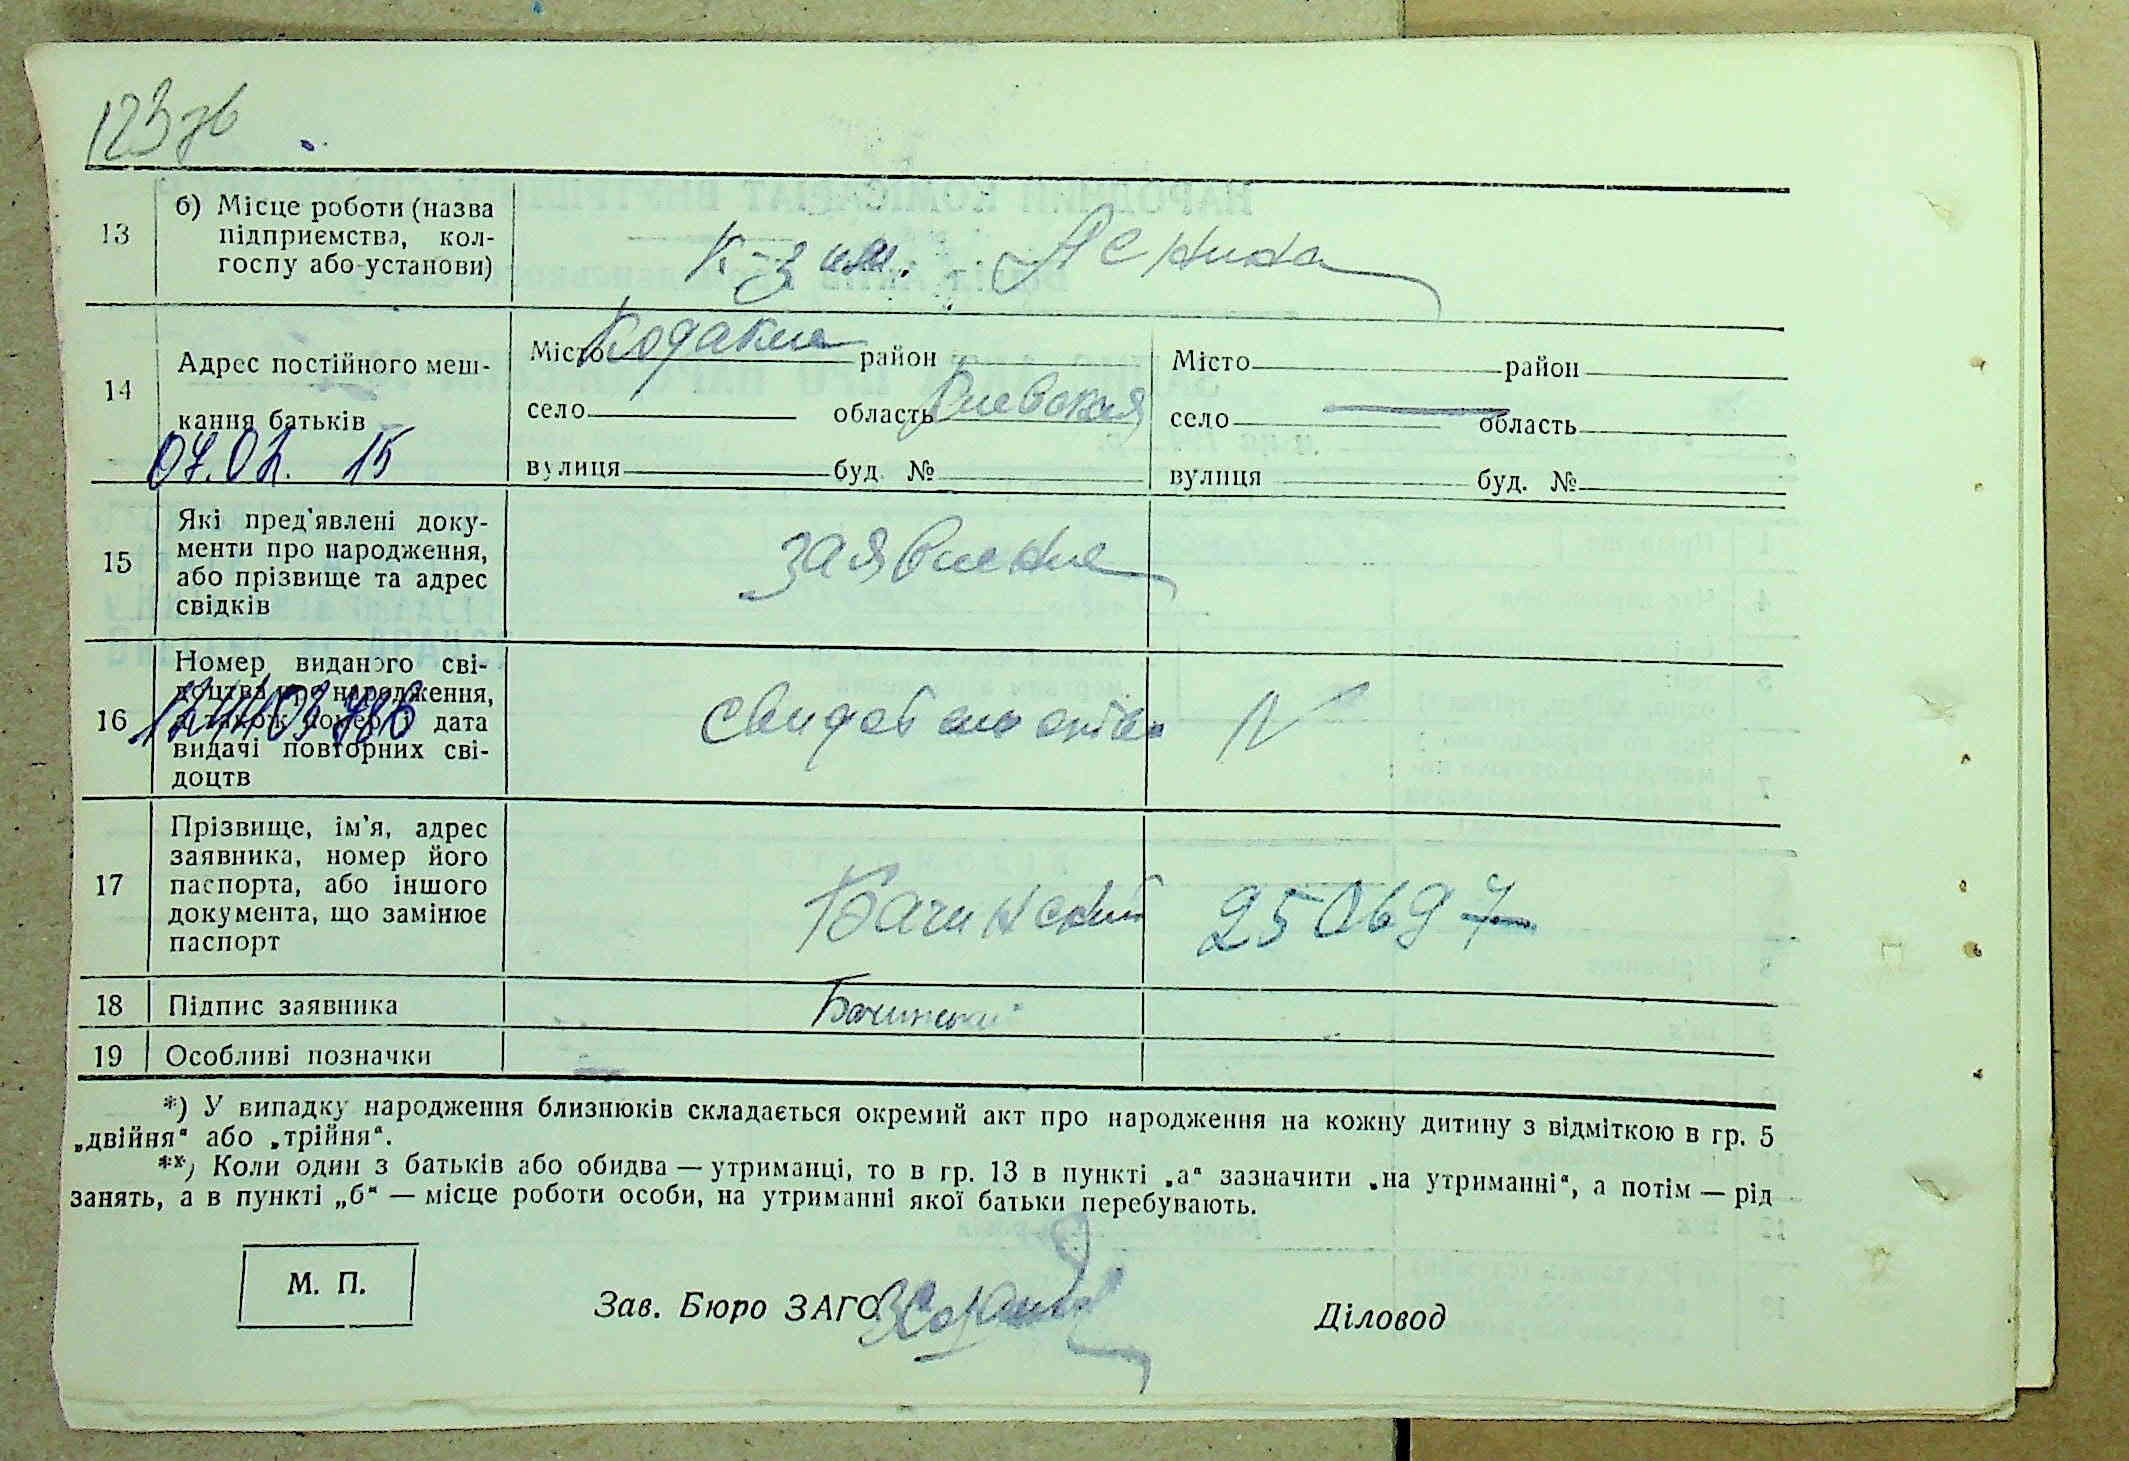 123 зв
13
б) Місце роботи (назва
підприємства, кол-
госпу або установи)
К-з им. Ленина
14
Адрес постійного меш-
кання батьків
07.02. 15
Місто Кодаки район
село область Киевская
вулиця буд. №
Місто район
село область
вулиця буд. №
15
Які пред'явлені доку-
менти про народження,
або прізвище та адрес
свідків
заявление
16
Номер виданого сві-
доцтва про народження,
а також номер і дата
видачі повторних сві-
доцтв
свидетельство №
17
Прізвище, ім'я, адрес
заявника, номер його
паспорта, або іншого
документа, що замінює
паспорт
Бачинский 250697
18
Підпис заявника
Бачинский
19
Особливі позначки
*) У випадку народження близнюків складається окремий акт про народження на кожну дитину з відміткою в гр. 5
„двійня“ або „трійня“.
**) Коли один з батьків або обидва — утриманці, то в гр. 13 в пункті „а“ зазначити „на утриманні“, а потім — рід
занять, а в пункті „б“ — місце роботи особи, на утриманні якої батьки перебувають.
М. П.
Зав. Бюро ЗАГС
Діловод